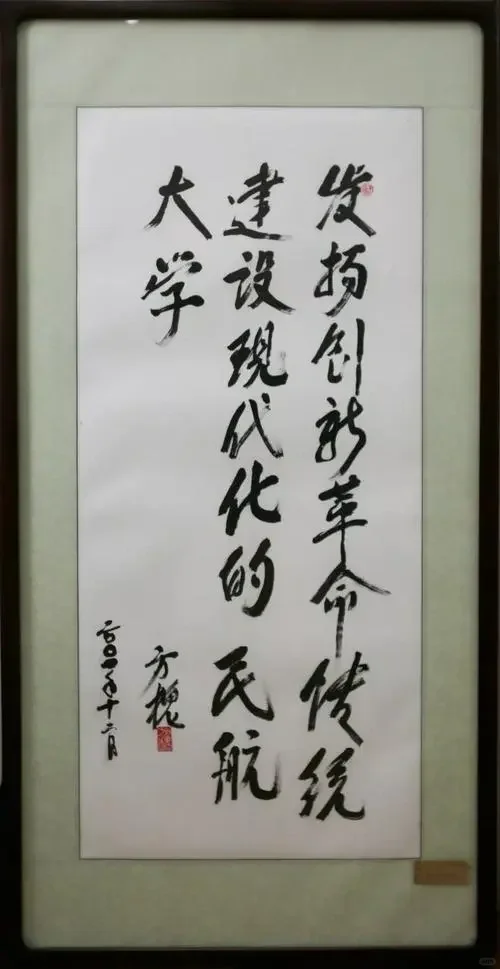 发扬创新革命传统
建设現代化的民航
大学
方槐
二〇〇四年十二月